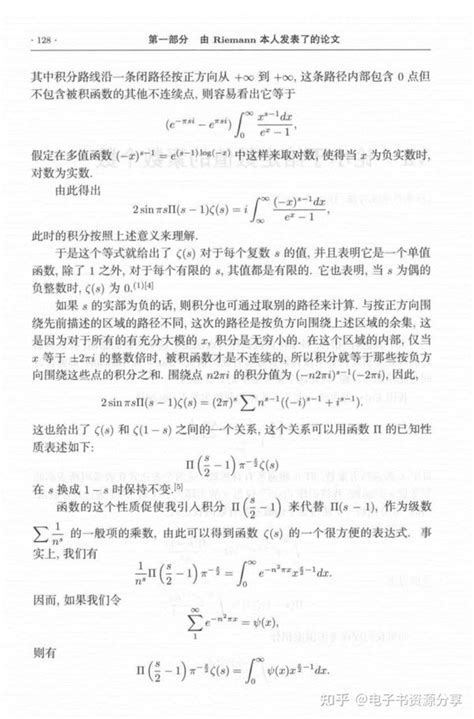 · 128 · 第一部分 由 Riemann 本人发表了的论文
其中积分路线沿一条闭路径按正方向从 +∞ 到 +∞, 这条路径内部包含 0 点但
不包含被积函数的其他不连续点, 则容易看出它等于
(e^{-πsi} − e^{πsi}) ∫_0^∞ x^{s−1}dx / (e^x − 1),
假定在多值函数 (−x)^{s−1} = e^{(s−1)log(−x)} 中这样来取对数, 使得当 x 为负实数时,
对数为实数.
由此得出
2 sin πsΠ(s − 1)ζ(s) = i ∫_∞^∞ (−x)^{s−1}dx / (e^x − 1),
此时的积分按照上述意义来理解.
于是这个等式就给出了 ζ(s) 对于每个复数 s 的值, 并且表明它是一个单值
函数, 除了 1 之外, 对于每个有限的 s, 其值都是有限的. 它也表明, 当 s 为偶的
负整数时, ζ(s) 为 0.(1)[4]
如果 s 的实部为负的话, 则积分也可通过取别的路径来计算. 与按正方向围
绕先前描述的区域的路径不同, 这次的路径是按负方向围绕上述区域的余集, 这
是因为对于所有的有充分大模的 x, 积分是无穷小的. 在这个区域的内部, 仅当
x 等于 ±2πi 的整数倍时, 被积函数才是不连续的, 所以积分就等于那些按负方
向围绕这些点的积分之和. 围绕点 n2πi 的积分值为 (−n2πi)^{s−1}(−2πi), 因此,
2 sin πsΠ(s − 1)ζ(s) = (2π)^s ∑ n^{s−1}((−i)^{s−1} + i^{s−1}).
这也给出了 ζ(s) 和 ζ(1 − s) 之间的一个关系, 这个关系可以用函数 Π 的已知性
质表述如下:
Π(s/2 − 1) π^{−s/2} ζ(s)
在 s 换成 1 − s 时保持不变.[5]
函数的这个性质促使我引入积分 Π(s/2 − 1) 来代替 Π(s − 1), 作为级数
∑ 1/n^s 的一般项的乘数, 由此可以得到函数 ζ(s) 的一个很方便的表达式. 事
实上, 我们有
1/n^s Π(s/2 − 1) π^{−s/2} = ∫_0^∞ e^{−n²πx} x^{s/2−1} dx.
因而, 如果我们令
∑_1^∞ e^{−n²πx} = ψ(x),
则有
Π(s/2 − 1) π^{−s/2} ζ(s) = ∫_0^∞ ψ(x)x^{s/2−1} dx.
知乎 @电子书资源分享